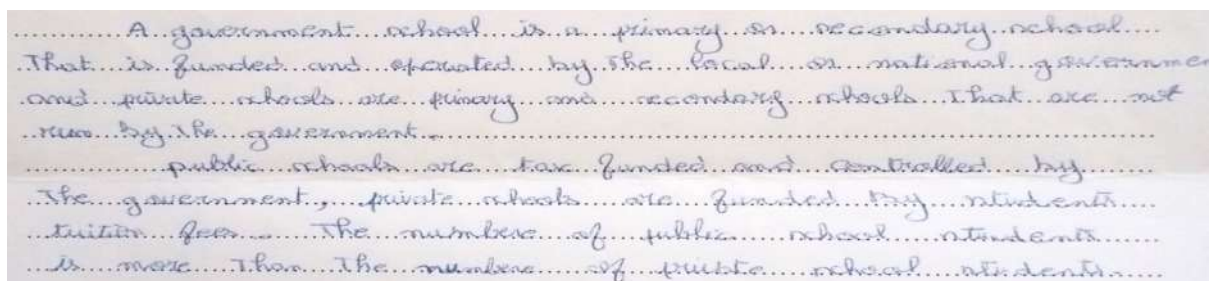 A government school is a primary or secondary school
That is funded and operated by The local or national governmen
and private schools are primary and secondary schools That are not
run by The government.
public schools are tax funded and controlled by
The government, private schools are funded by students
tuition fees. The numbere of public school students
is more Than The numbere of private school students.